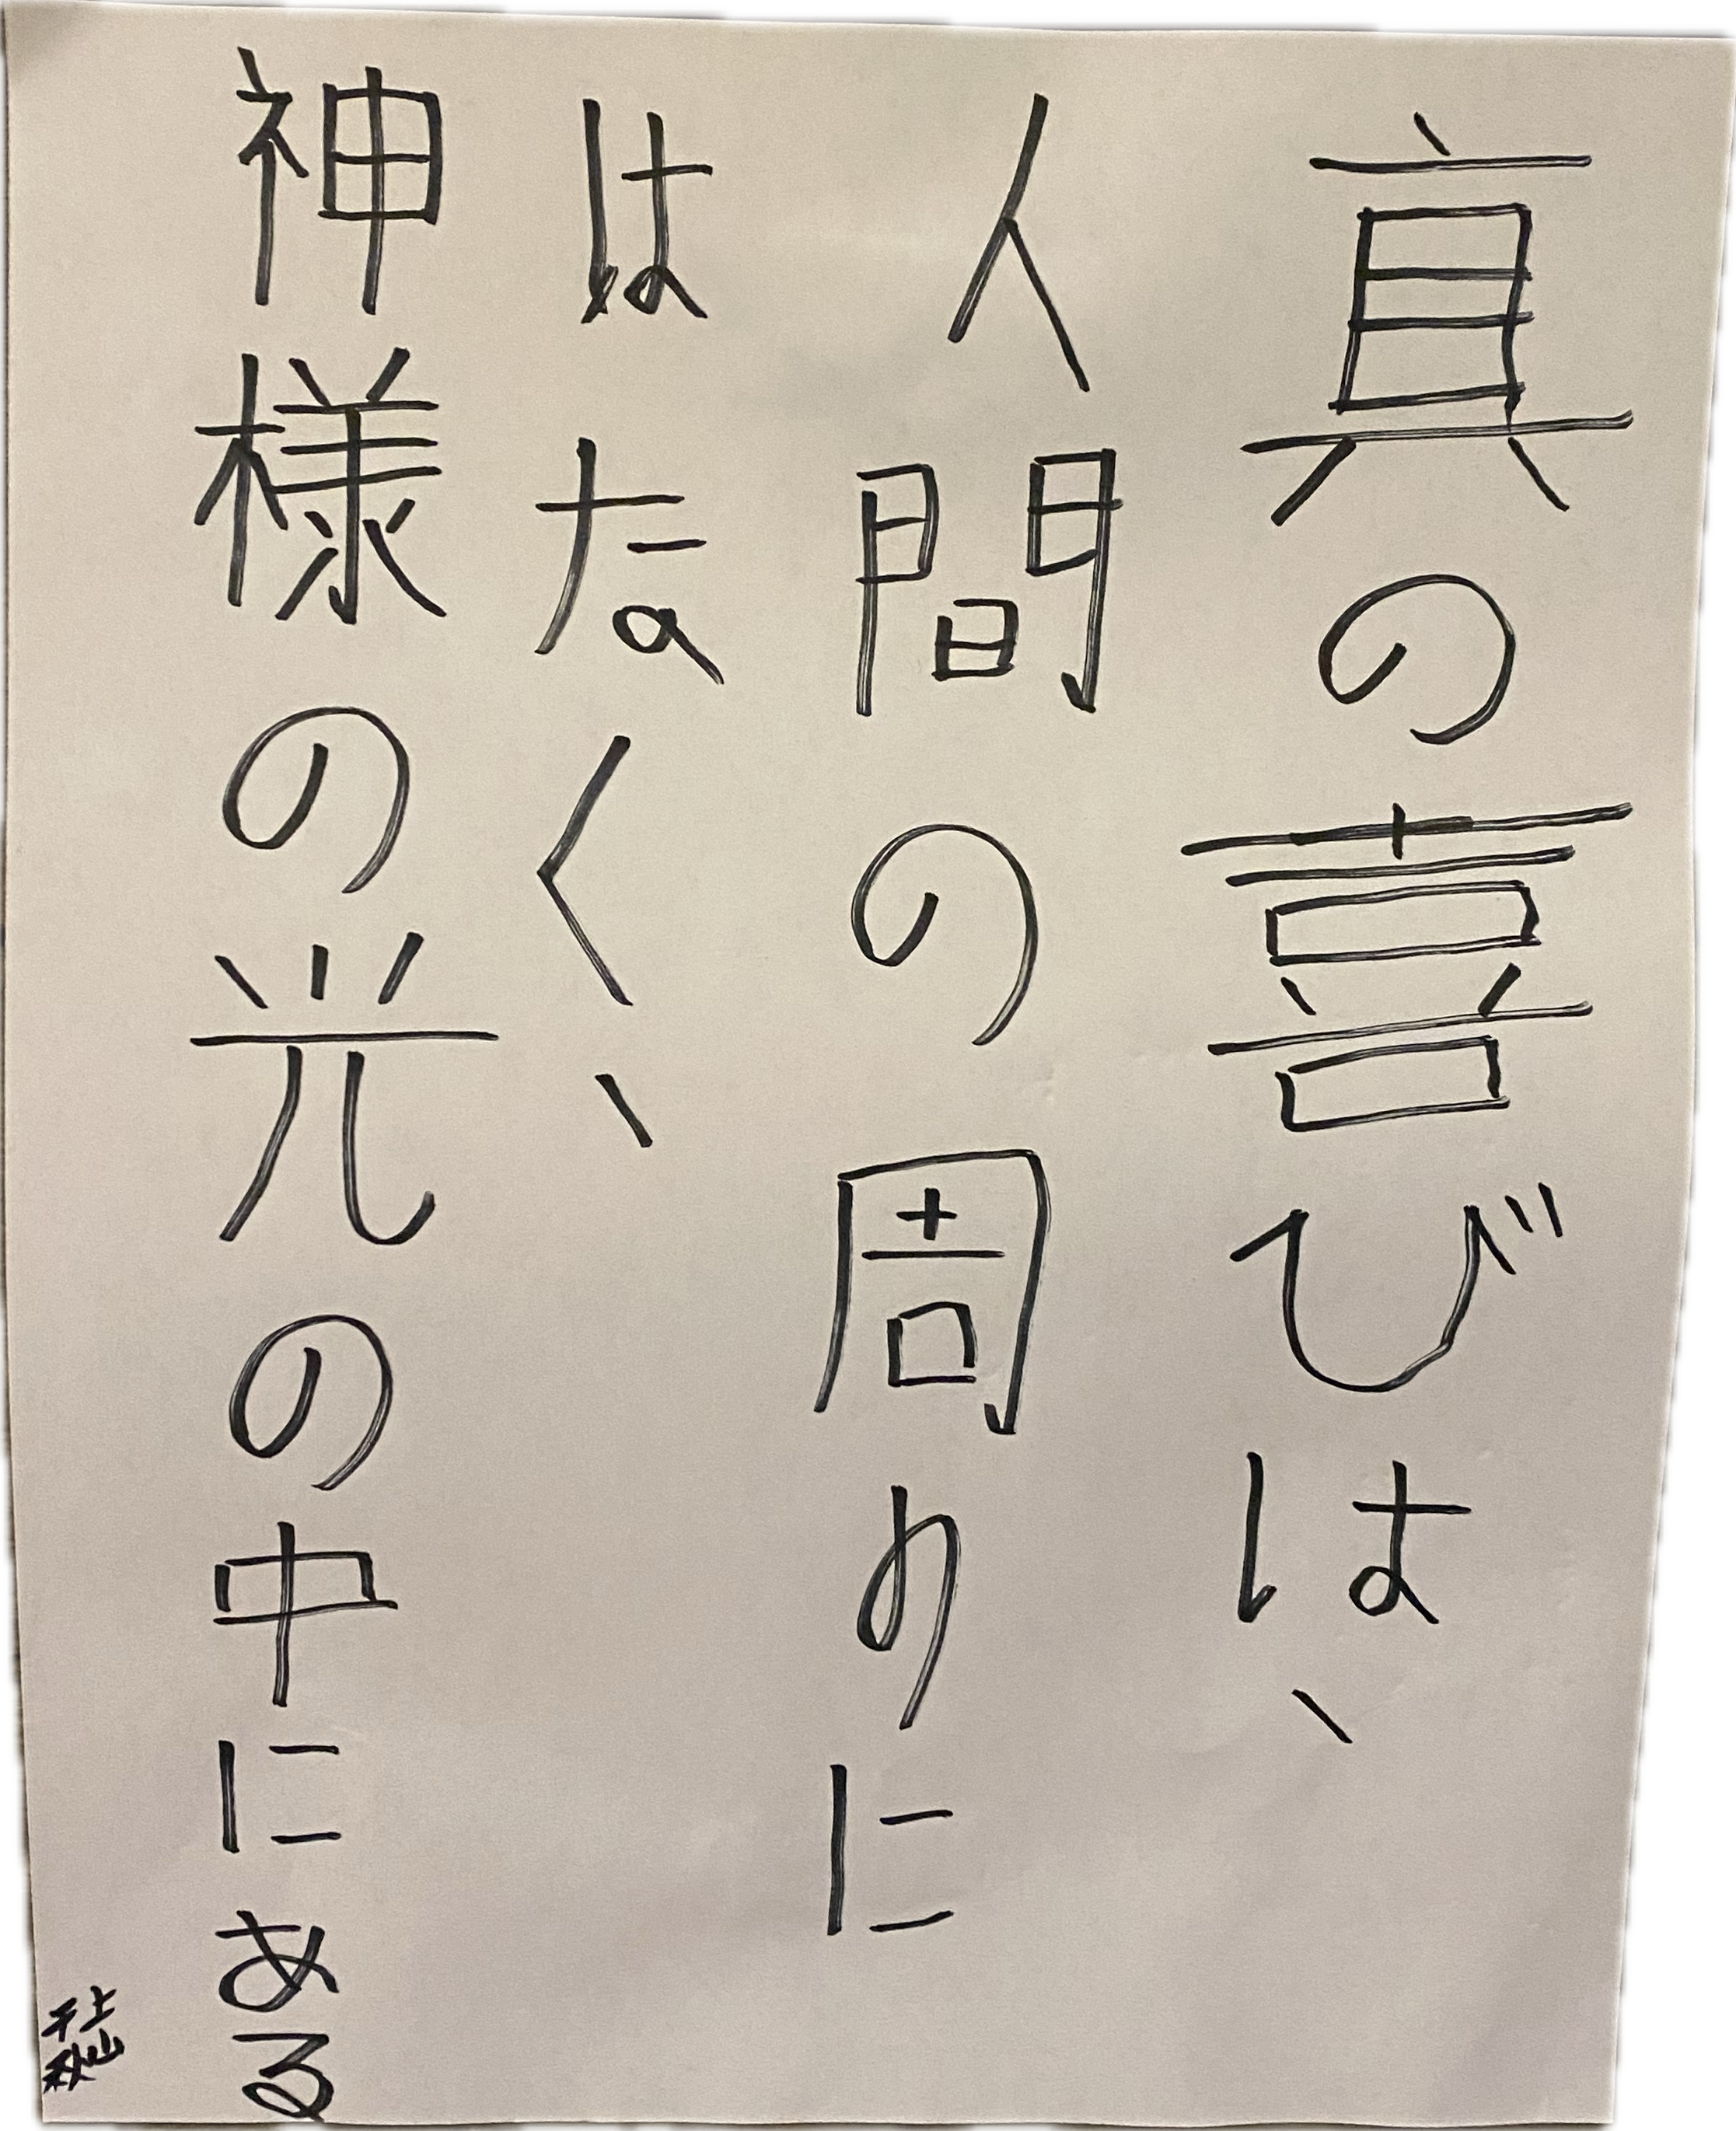 真の喜びは、
人間の周りに
はなく、
神様の光の中にある